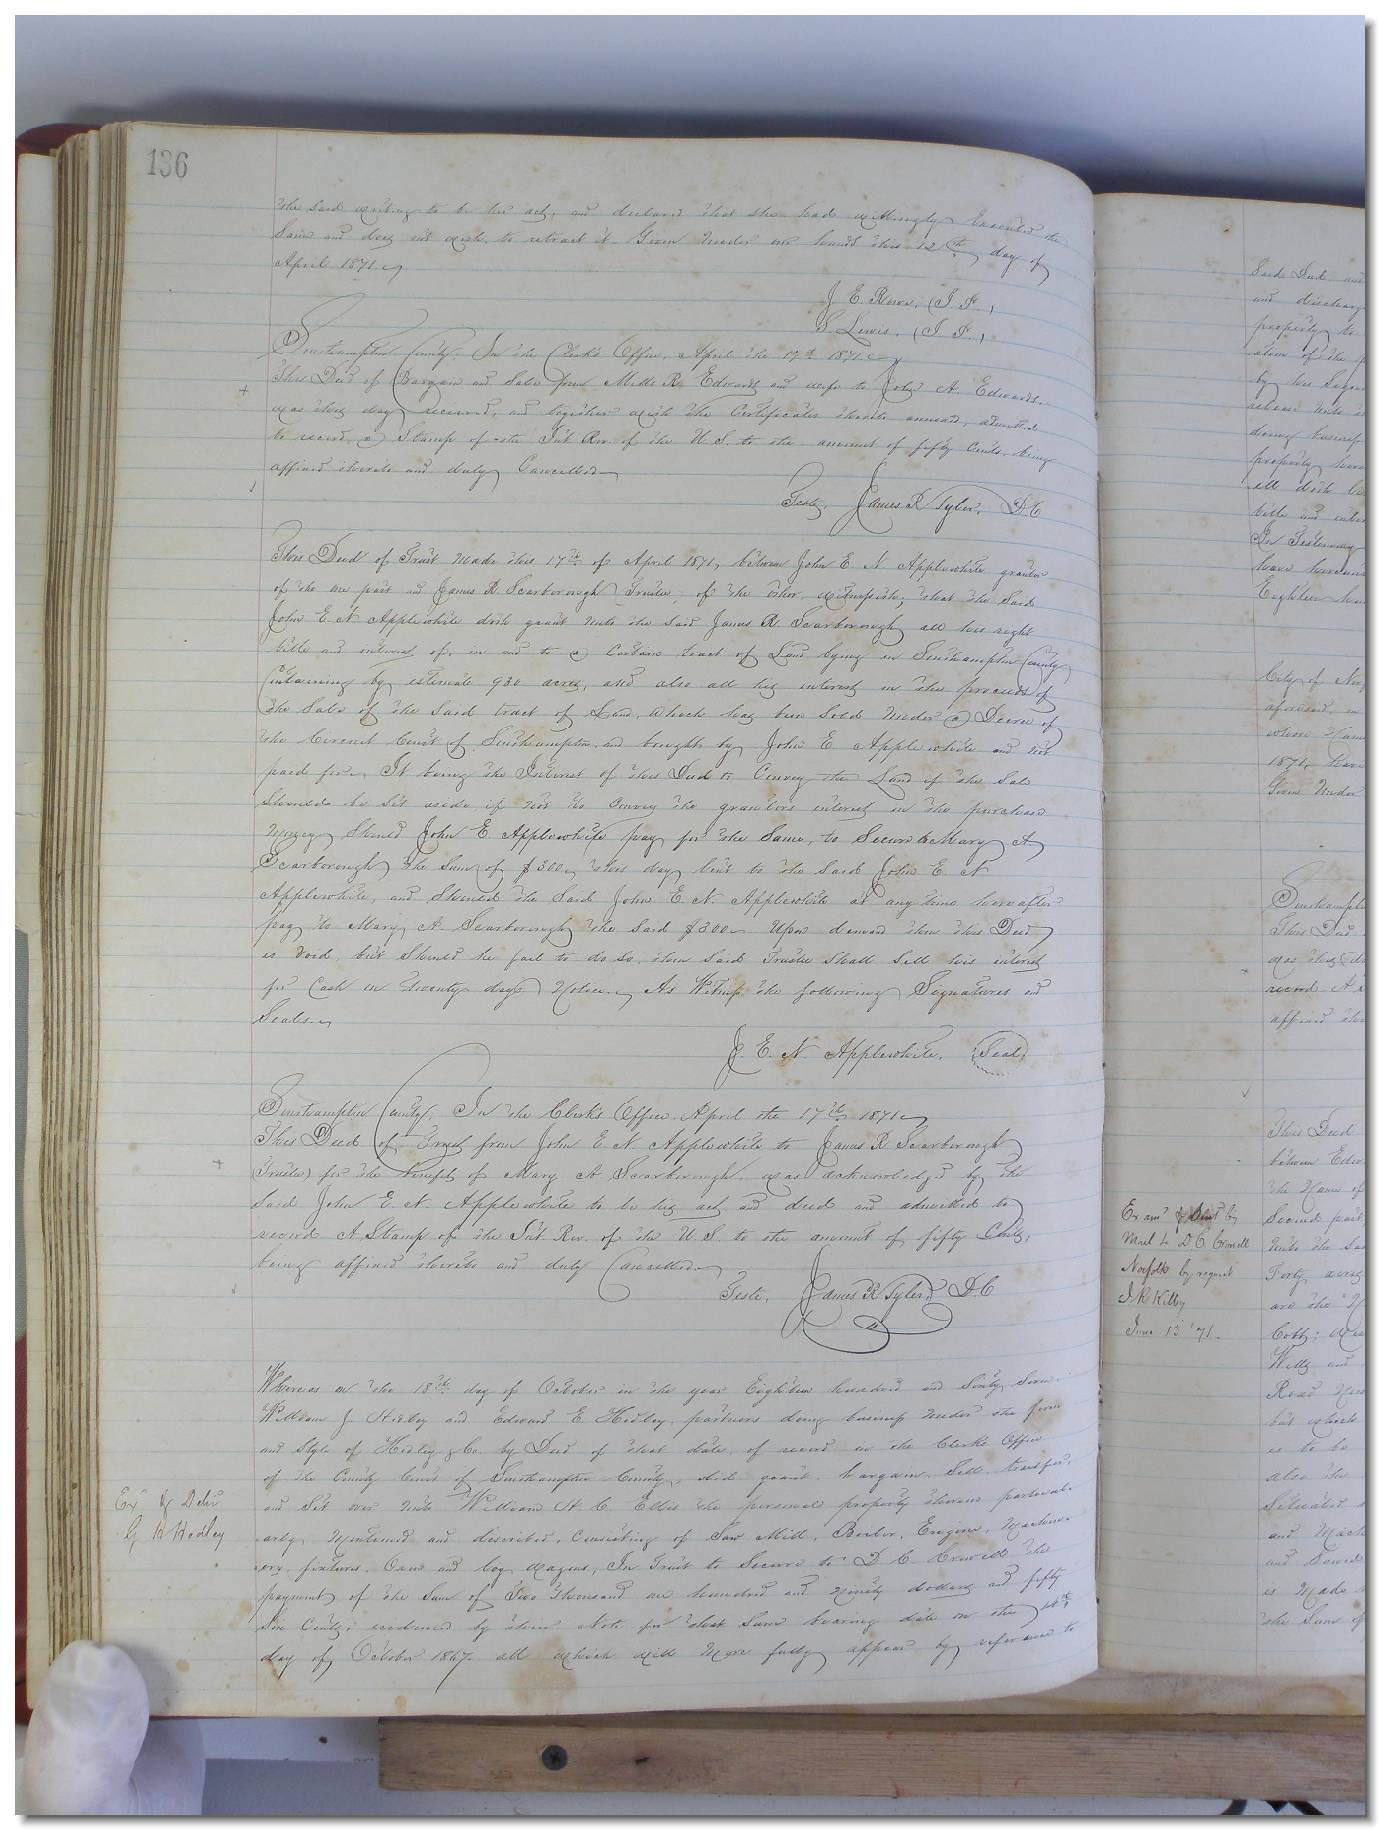 136
the said writing to be her act, and declared that she had willingly executed the
same and does not wish to retract it. Given under our hands this 12th day of
April 1871.
J. E. Rowe, (J. P.)
S. Lewis, (J. P.)
Southampton County. In the Clerk's Office, April the 17th 1871.
This Deed of Bargain and Sale from Mills R. Edwards and wife to John A. Edwards.
was this day received, and together with the Certificates thereto annexed, admitted
to record, a Stamp of the Int Rev. of the U. S. to the amount of fifty Cents, being
affixed thereto and duly Cancelled
Teste, James R Tyler, D.C
This Deed of Trust made this 17th of April 1871, between John E N Applewhite grantor
of the one part and James R Scarborough Trustee, of the other, witnesseth, that the Said
John E. N. Applewhite doth grant unto the said James R. Scarborough all his right
title and interest of, in and to a certain tract of Land lying in Southampton County
Containing by estimate 930 acres, and also all his interest in the proceeds of
the Sale of the Said tract of Land, which has been Sold under a Decree of
the Circuit Court of Southampton and bought by John E Applewhite and not
paid for, It being the Interest of this Deed to Convey the Land if the Sale
Should be Set aside, if not to convey the grantors interest in the purchase
Money Should John E. Applewhite pay for the Same, to Secure to Mary A
Scarborough the Sum of $300 this day lent to the Said John E. N
Applewhite, and Should the Said John E N. Applewhite at any time hereafter
pay to Mary A. Scarborough the Said $300 upon demand then this Deed
is void, but Should he fail to do so, then Said Trustee Shall Sell his interest
for Cash on twenty days Notice. As Witness the following Signatures and
Seals.
J. E. N Applewhite. (Seal)
Southampton County, In the Clerk's Office April the 17th 1871
This Deed of Trust from John E N Applewhite to James R Scarborough
(Trustee) for the benefit of Mary A Scarborough, was acknowledged by the
Said John E. N. Applewhite to be his act and deed and admitted to
record. A Stamp of the Int Rev. of the U. S. to the amount of fifty Cents,
being affixed thereto and duly Cancelled
Teste, James R Tyler, D.C
Whereas on the 18th day of October in the year Eighteen hundred and Sixty Seven
William J Hedley and Edward E. Hedley, partners doing business under the firm
and Style of Hedley & Co. by Deed of that date, of record in the Clerks Office
of the County Court of Southampton County, did grant, bargain, Sell, transfer,
and Set over unto William H. C. Ellis the personal property therein particul-
arly mentioned and described, Consisting of Saw Mill, Boiler, Engine, Machin-
ery, fixtures, Oxen and log wagons, In Trust to Secure to D. C. Crowell the
payment of the Sum of Two thousand one hundred and ninety dollars and fifty
Six Cents, evidenced by their Note for that Sum bearing date on the
day of October 1867. all which will more fully appear by reference to
Exd & Deld
G H Hedley
Said Deed and
and discharg
property to
ation of the
by his Signa
release unto
doing business
property
all doth
title and inter
In Testimony
have hereun
Eighteen hun
City of Nor
aforesaid, in
whose Name
1871, have
Given Under
Southampto
This Deed
was this d
record. A
affixed the
This Deed
between Edw
the Name of
Second part,
Unto the Sa
Forty, acres
are the
Cobb;
Wells and
Road
but
is to be
also the
Situated
and Mach
and
is Made
the Sum of
Exam & Sent by
Mail to D C Crowell
Norfolk by request
J. R Kilby
June 13 '71.